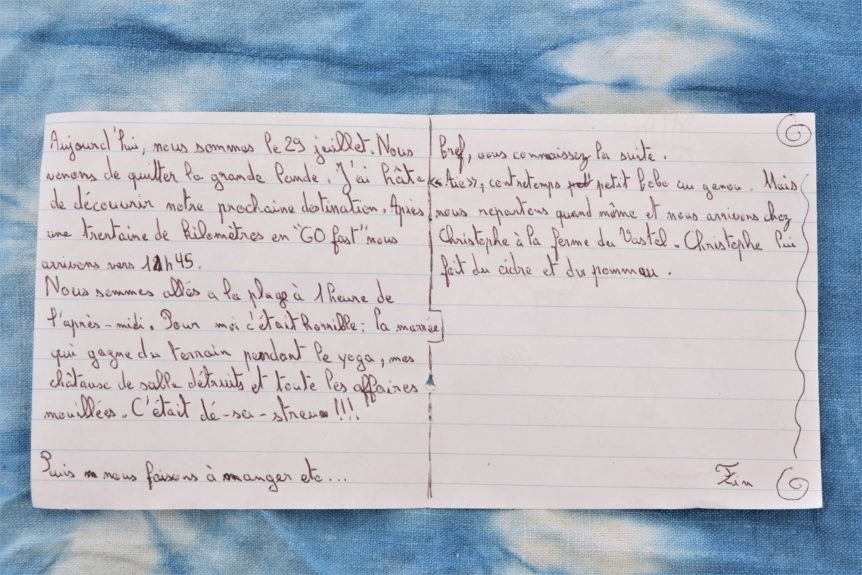 Aujourd'hui, nous sommes le 29 juillet. Nous
venons de quitter la grande lande. J'ai hâte
de découvrir notre prochaine destination. Après
une trentaine de kilomètres en "GO fast" nous
arrivons vers 11h45.
Nous sommes allés a la plage à 1 heure de
l'après-midi. Pour moi c'était horrible : la marrée
qui gagne du terrain pendant le yoga, mes
châteaux de salle détruits et toute les affaires
mouillées. C'était dé-sa-streux !!!
Puis nous faisons à manger etc...
Bref, vous connaissez la suite.
« Aïe », contretemps petit bobo au genou. Mais
nous repartons quand même et nous arrivons chez
Christophe à la ferme du Vastel. Christophe lui
fait du cidre et du pommeau.